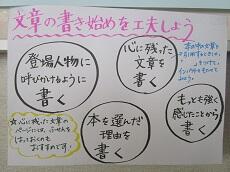 文章の書き始めを工夫しよう
登場人物に
呼びかけるように
書く
心に残った
文章を
書く
本を選んだ
理由を
書く
もっとも強く
感じたことから
書く
☆心に残った文章の
ページには、ふせんを
はっておくのも
おすすめです。